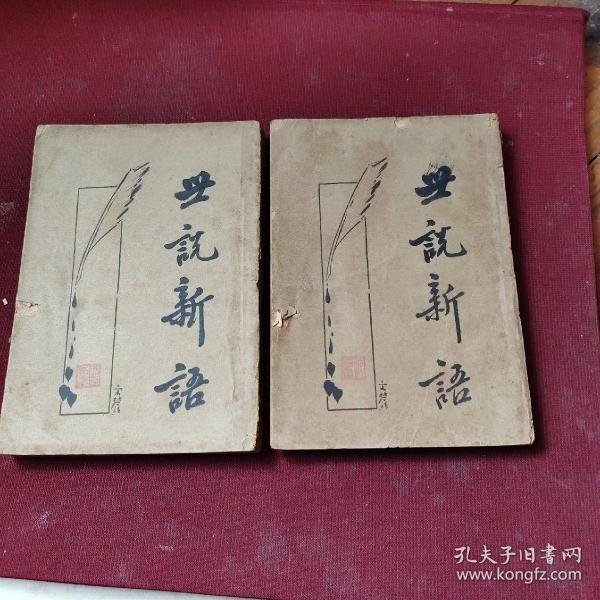 世說新語
世說新語
孔夫子旧書网
www.kongfz.com